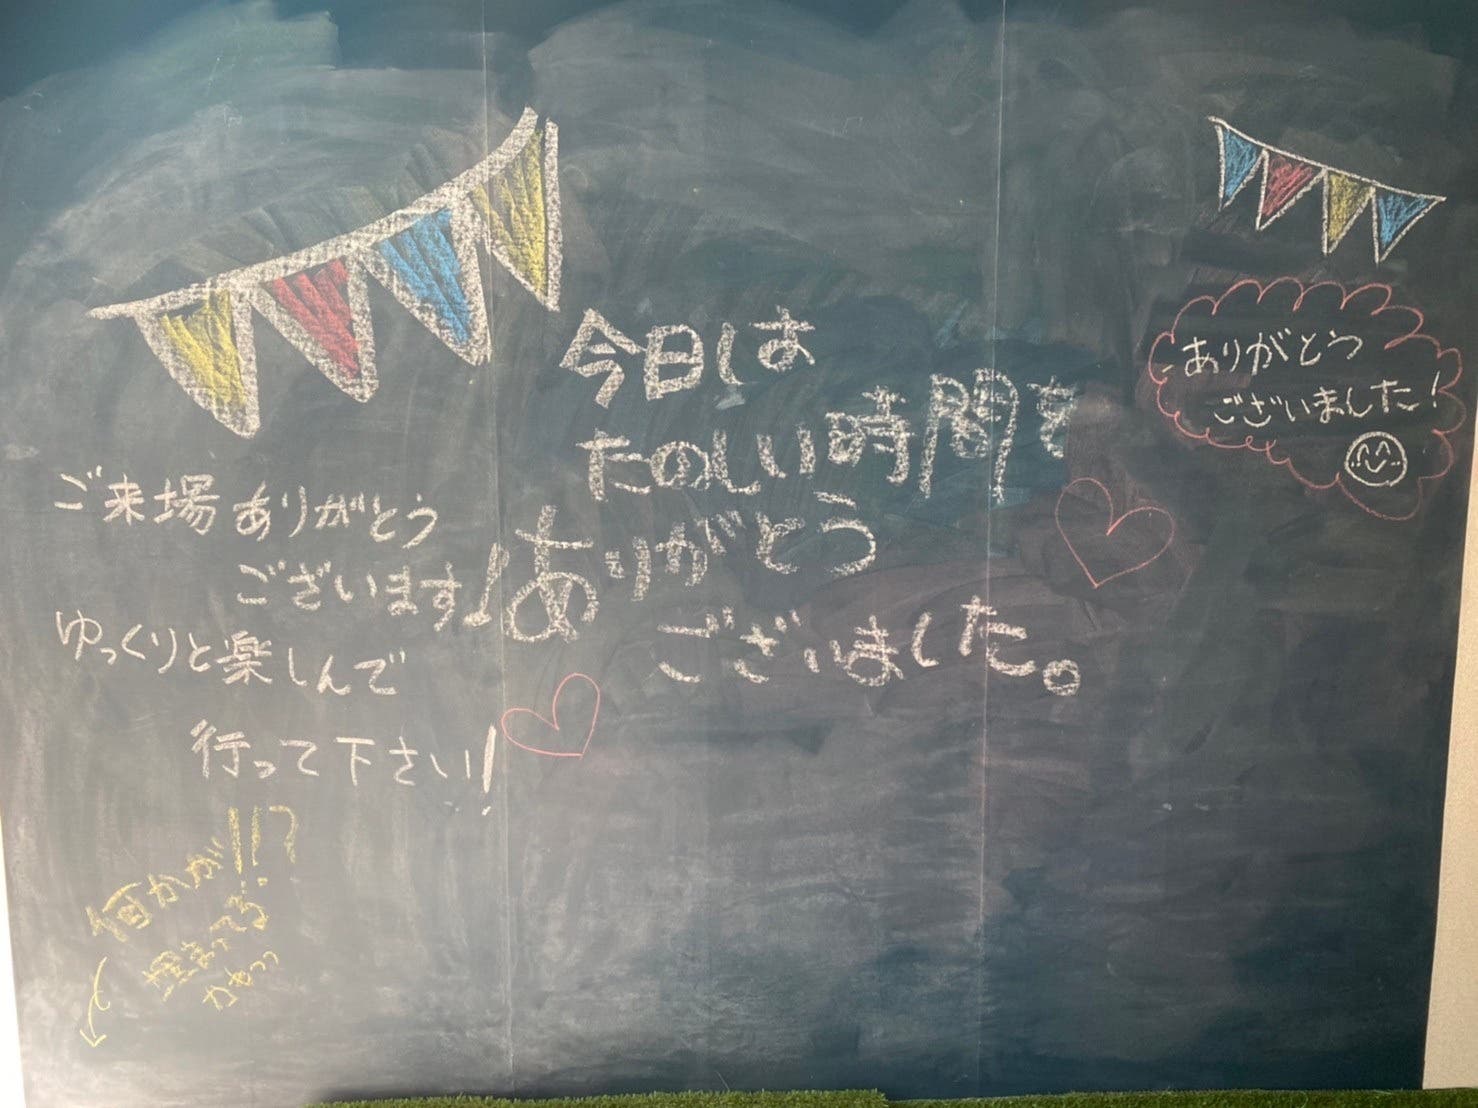 ご来場ありがとう
ございます!
ゆっくりと楽しんで
行って下さい!
何かが!!?
埋まってる
かぁっっ
今日は
たのしい時間を
ありがとう
ございました。
ありがとう
ございました!